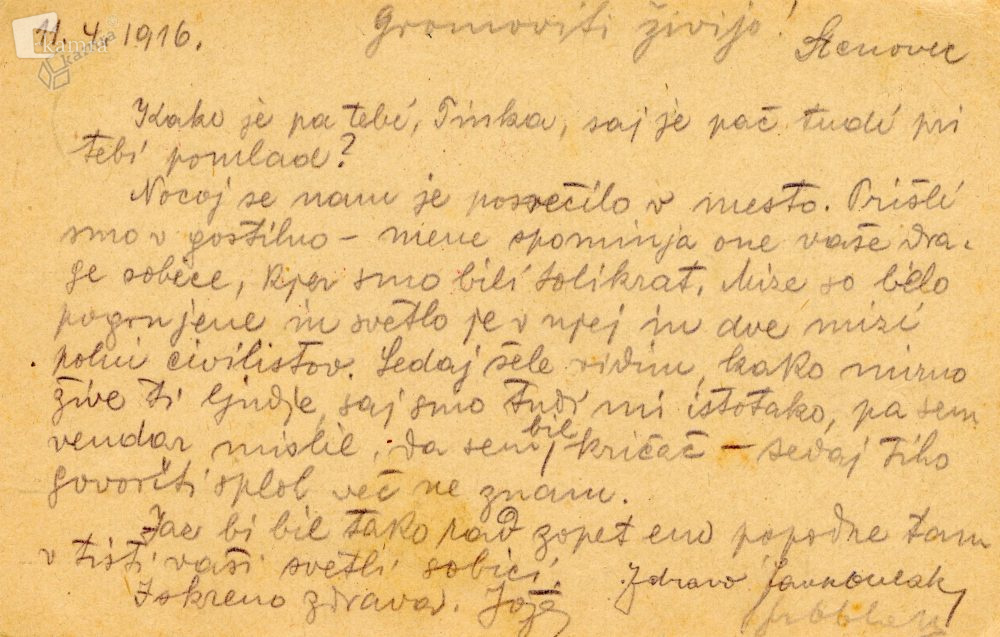 11. 4. 1916.
Gromoviti živijo!
Stenovec
Kako je pa tebi, Tinka, saj je pač tudi pri
tebi pomlad?
Nocoj se nam je posvečilo v mesto. Prišli
smo v gostilno – mene spominja one vaše dra-
ge sobice, kjer smo bili tolikrat. Mize so belo
pogrnjene in svetlo je v njej in dve mizi
polni civilistov. Sedaj šele vidim, kako mirno
žive ti ljudje, saj smo tudi mi istotako, pa sem
vendar mislil, da sem bil kričač – sedaj tiho
govoriti sploh več ne znam.
Jaz bi bil tako rad zopet eno popodne tam
v tisti vaši svetli sobici.
Iskreno zdrava. Joža
Zdravo
kamra